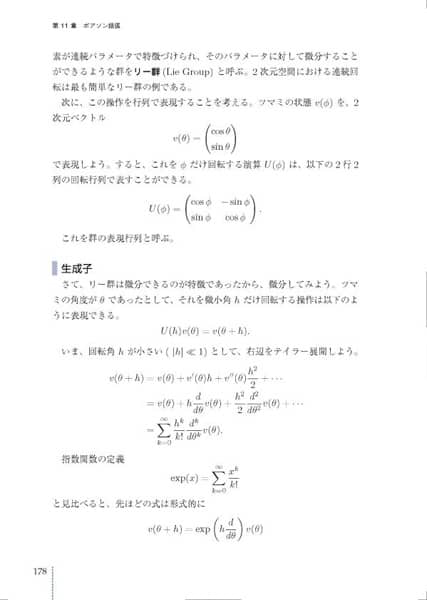 第 11 章　ポアソン括弧
素が連続パラメータで特徴づけられ、そのパラメータに対して微分すること
ができるような群をリー群 (Lie Group) と呼ぶ。2 次元空間における連続回
転は最も簡単なリー群の例である。
次に、この操作を行列で表現することを考える。ツマミの状態 v(φ) を、2
次元ベクトル
v(θ) = (cos θ
sin θ)
で表現しよう。すると、これを φ だけ回転する演算 U(φ) は、以下の 2 行 2
列の回転行列で表すことができる。
U(φ) = (cos φ　− sin φ
sin φ　cos φ).
これを群の表現行列と呼ぶ。
生成子
さて、リー群は微分できるのが特徴であったから、微分してみよう。ツマ
ミの角度が θ であったとして、それを微小角 h だけ回転する操作は以下のよ
うに表現できる。
U(h)v(θ) = v(θ + h).
いま、回転角 h が小さい ( |h| ≪ 1) として、右辺をテイラー展開しよう。
v(θ + h) = v(θ) + v′(θ)h + v″(θ) h²/2 + ⋯
= v(θ) + h d/dθ v(θ) + h²/2 d²/dθ² v(θ) + ⋯
= ∑_{k=0}^{∞} h^k/k! d^k/dθ^k v(θ).
指数関数の定義
exp(x) = ∑_{k=0}^{∞} x^k/k!
と見比べると、先ほどの式は形式的に
v(θ + h) = exp (h d/dθ) v(θ)
178